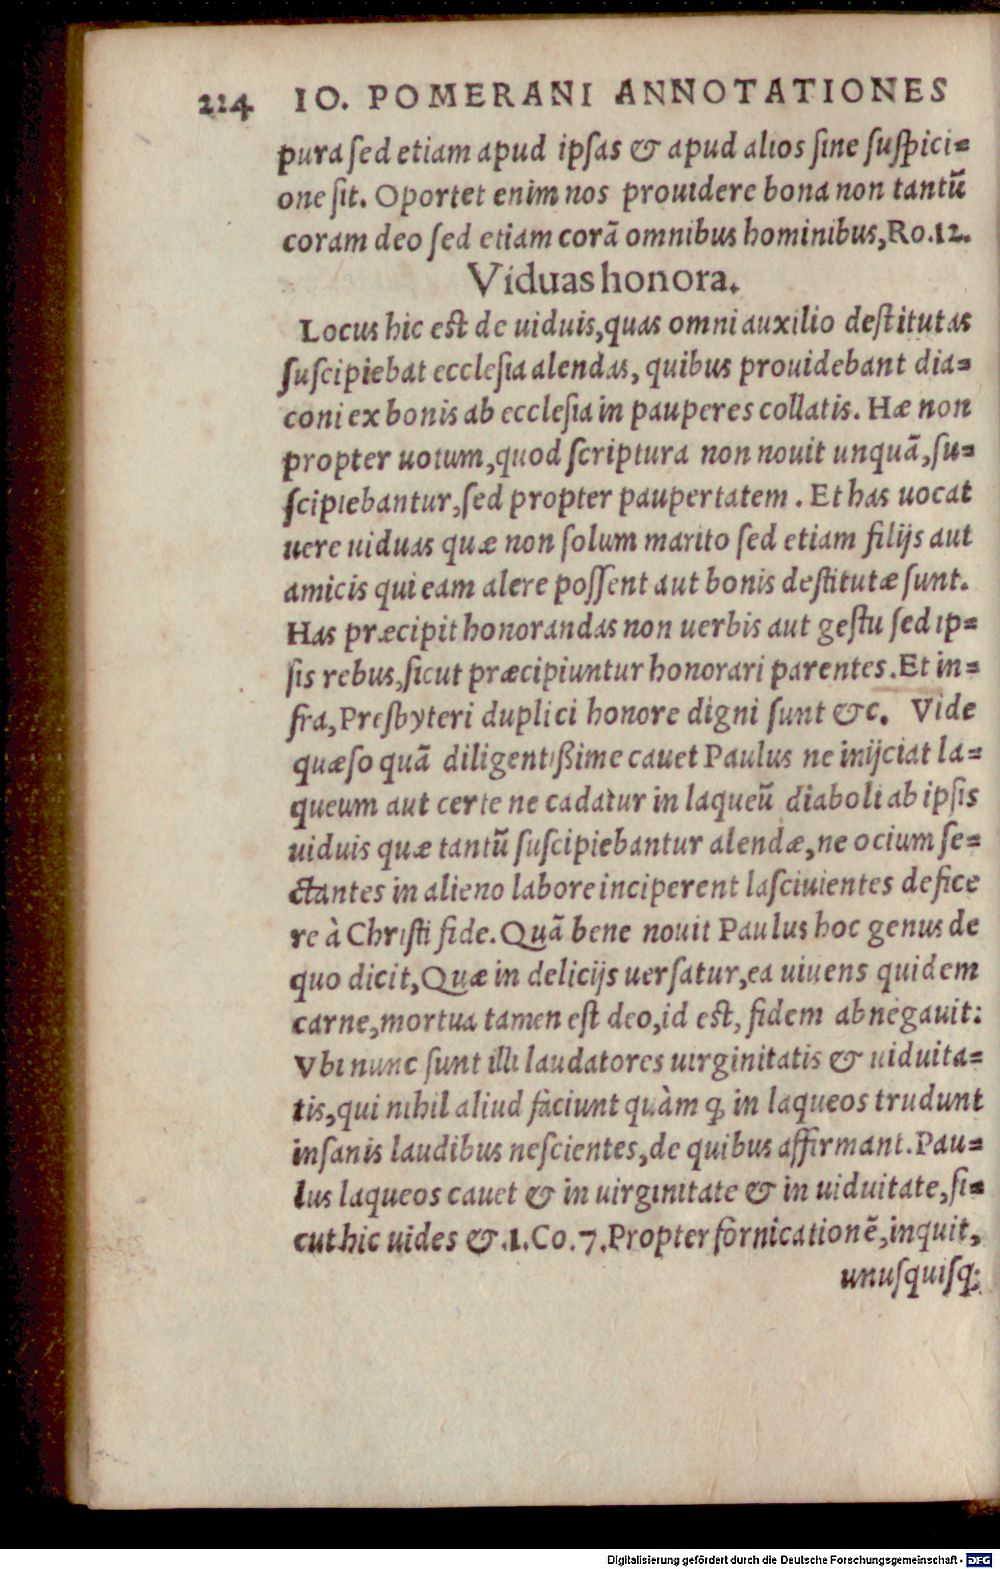 224 IO. POMERANI ANNOTATIONES
pura sed etiam apud ipsas & apud alios sine suspici=
one sit. Oportet enim nos prouidere bona non tantũ
coram deo sed etiam corã omnibus hominibus, Ro.12.
Viduas honora.
Locus hic est de uiduis, quas omni auxilio destitutas
suscipiebat ecclesia alendas, quibus prouidebant dia=
coni ex bonis ab ecclesia in pauperes collatis. Hæ non
propter uotum, quod scriptura non nouit unquã, su=
scipiebantur, sed propter paupertatem. Et has uocat
uere uiduas quæ non solum marito sed etiam filijs aut
amicis qui eam alere possent aut bonis destitutæ sunt.
Has præcipit honorandas non uerbis aut gestu sed ip=
sis rebus, sicut præcipiuntur honorari parentes. Et in=
fra, Presbyteri duplici honore digni sunt &c. Vide
quæso quã diligentißime cauet Paulus ne inijciat la=
queum aut certe ne cadatur in laqueũ diaboli ab ipsis
uiduis quæ tantũ suscipiebantur alendæ, ne ocium se=
ctantes in alieno labore inciperent lasciuientes defice
re à Christi fide. Quã bene nouit Paulus hoc genus de
quo dicit, Quæ in delicijs uersatur, ea uiuens quidem
carne, mortua tamen est deo, id est, fidem abnegauit:
Vbi nunc sunt illi laudatores uirginitatis & uiduita=
tis, qui nihil aliud faciunt quàm ꝙ in laqueos trudunt
insanis laudibus nescientes, de quibus affirmant. Pau=
lus laqueos cauet & in uirginitate & in uiduitate, si=
cut hic uides &.1.Co.7. Propter fornicationẽ, inquit,
unusquisq;
Digitalisierung gefördert durch die Deutsche Forschungsgemeinschaft - DFG